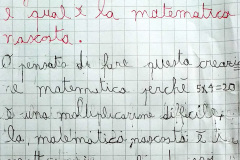 è qual è la matematica
nascosta.
O pensato di fare questa
e matematica perchè 5x4=20
è una moltiplicazione difficile,
la matematica nascosta è il